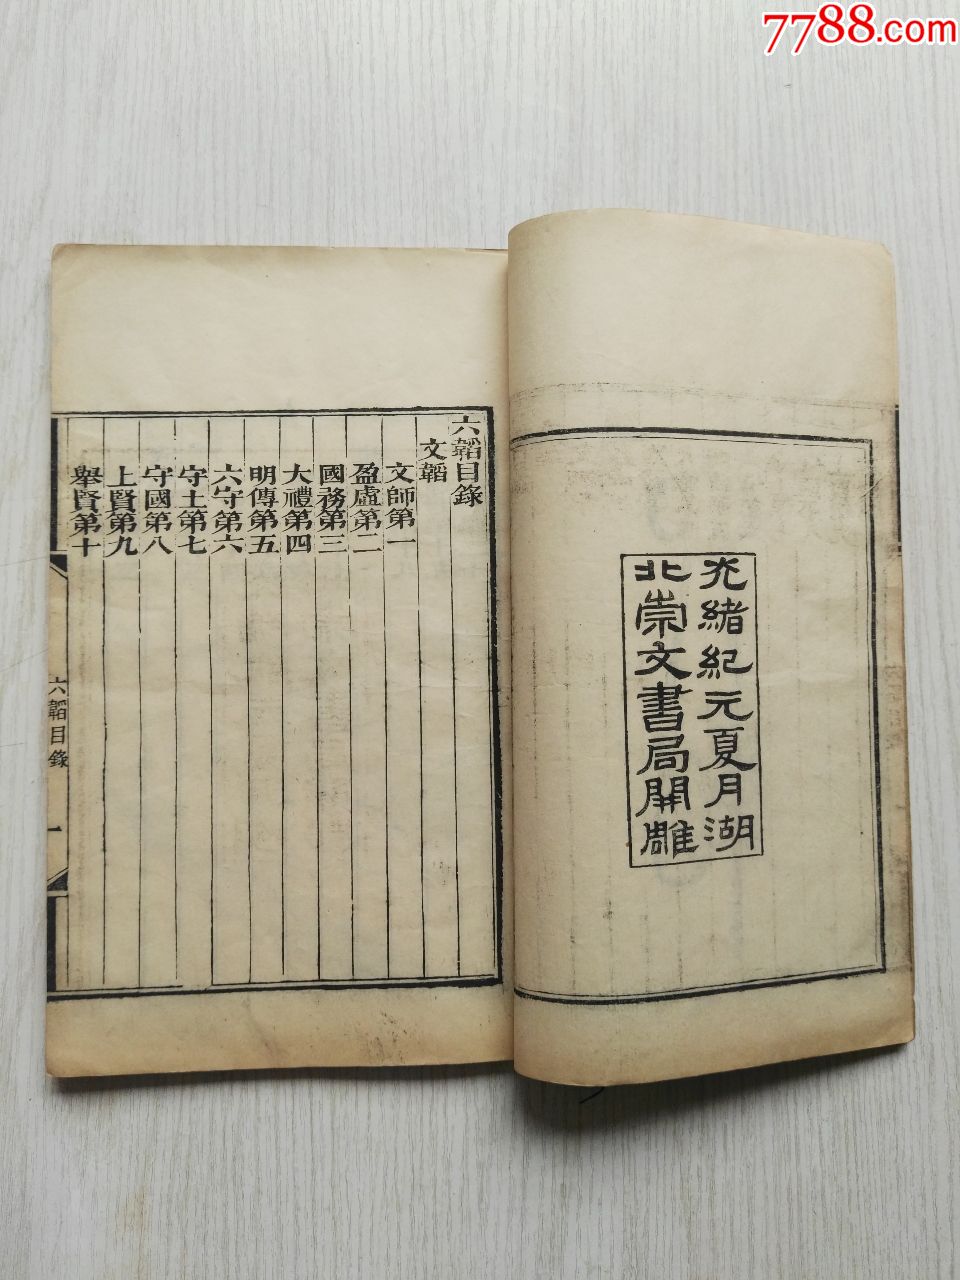 7788.com
光緒紀元夏月湖
北崇文書局開雕
六韜目錄
文韜
文師第一
盈虛第二
國務第三
大禮第四
明傳第五
六守第六
守土第七
守國第八
上賢第九
舉賢第十
六韜目錄
一